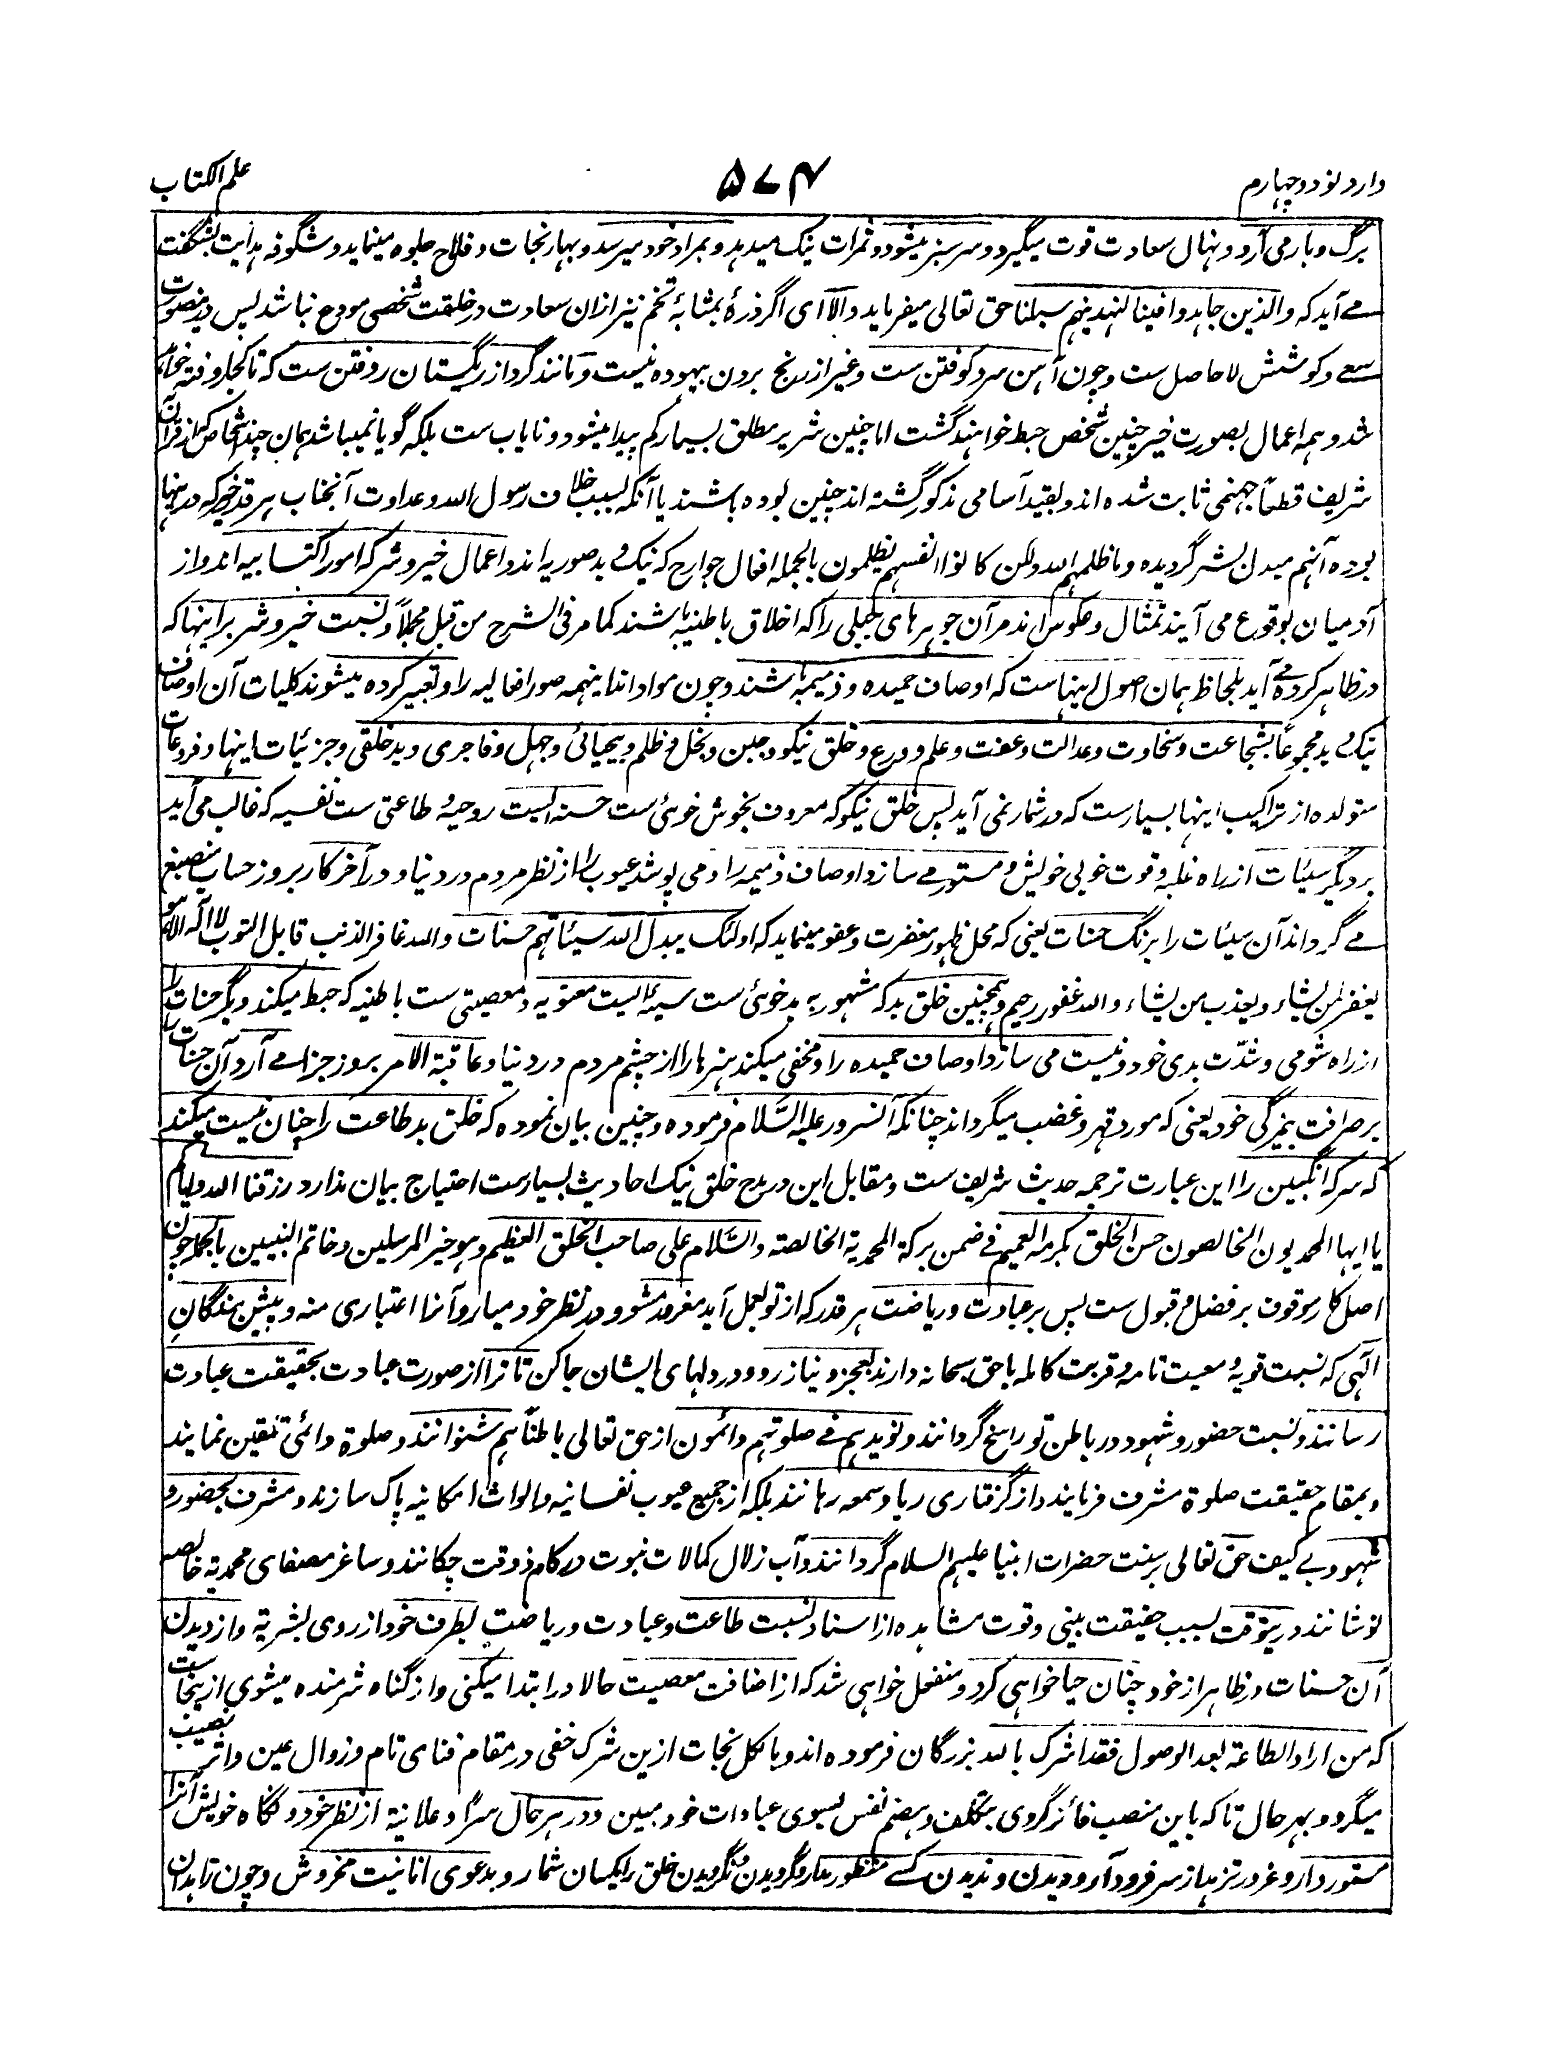 وارد نود و چہارم ۵۷۴ علم الکتاب
برگ و بار می آرد و نہال سعادت قوت میگیرد و سرسبز میشود و ثمرات نیک میدہد و بمراد خود میرسد و بہار نجات و فلاح جلوہ مینماید و شگوفہ ہدایت بشگفت
مے آید کہ والذین جاہدوا فینا لنہدینہم سبلنا حق تعالی میفرماید والا ای اگر ذرۂ بمثابۂ تخم نیز ازان سعادت در خلقت شخصی مودع نباشد پس درینصورت
سعے و کوشش لا حاصل ست و چون آہن سرد کوفتن ست و غیر از رنج بردن بیہودہ نیست و مانند گرد از ریگستان رفتن ست کہ تا کجا رفتہ خواہد
شد و ہمہ اعمال بصورت خیر چنین شخص حبط خواہند گشت اما چنین شریر مطلق بسیار کم پیدا میشود و نایاب ست بلکہ گویا نمیباشد ہمان چند اشخاص کہ از قرآن
شریف قطعاً جہنمی ثابت شدہ اند و بقید آسامی مذکور گشتہ اند چنین بودہ باشند یا آنکہ بسبب خلاف رسول اللہ و عداوت آنجناب ہر قدر خیر کہ در اینہا
بودہ آنہم مبدل بشر گردیدہ و ما ظلمہم اللہ ولکن کانوا انفسہم یظلمون بالجملہ افعال جوارح کہ نیک و بد صوریہ اند و اعمال خیر و شر کہ امور اکتسابیہ اند و از
آدمیان بوقوع می آیند تمثال و عکوس اند مر آن جوہرہای جبلی را کہ اخلاق باطنیہ باشند کما مر فی الشرح من قبل مجملاً و نسبت خیر و شر بر اینہا کہ
در ظاہر کردہ مے آید بلحاظ ہمان اصول اینہاست کہ اوصاف حمیدہ و ذمیمہ باشند و چون مواد اند اینہمہ صور افعالیہ را و تعبیر کردہ میشوند کلیات آن اوصاف
نیک و بد مجموعاً بشجاعت و سخاوت و عدالت و عفت و علم و ورع و خلق نیکو و جبن و بخل و ظلم و بیحیائی و جہل و فاجری و بدخلقی و جزئیات اینہا و فروعات
متولدہ از تراکیب اینہا بسیارست کہ در شمار نمی آید پس خلق نیکو کہ معروف بخوش خوئی ست حسنہ ایست روحیہ و طاعتی ست نفسیہ کہ غالب می آید
بر دیگر سیئات از راہ غلبہ و قوت خوبی خویش و مستور مے سازد اوصاف ذمیمہ را و می پوشد عیوب را از نظر مردم در دنیا و در آخر کار بروز حساب منصبغ
مے گرداند آن سیئات را برنگ حسنات یعنی کہ محل ظہور مغفرت و عفو مینماید کہ اولئک یبدل اللہ سیئاتہم حسنات واللہ غافر الذنب قابل التوب لا الہ الا ہو
یغفر لمن یشاء و یعذب من یشاء واللہ غفور رحیم و ہمچنین خلق بد کہ مشہور بہ بدخوئی ست سیئہ ایست معنویہ و معصیتی ست باطنیہ کہ حبط میکند دیگر حسنات را
از راہ شومی و شدّت بدی خود و نیست می سازد اوصاف حمیدہ را و مخفی میکند ہنرہا را از چشم مردم در دنیا و عاقبۃ الامر بروز جزا مے آرد آن حسنات را
بر صرافت بیرنگی خود یعنی کہ مورد قہر و غضب میگرداند چنانکہ آنسرور علیہ السّلام فرمودہ و چنین بیان نمودہ کہ خلق بد طاعت را چنان نیست میکند
کہ سرکہ انگبین را این عبارت ترجمہ حدیث شریف ست و مقابل این در مدح خلق نیک احادیث بسیارست احتیاج بیان ندارد رزقنا اللہ و ایاکم
یا ایہا المحمدیون الخالصون حسن الخلق بکرمہ العمیم فے ضمن برکۃ المحمدیۃ الخالصۃ والسّلام علی صاحب الخلق العظیم و ہو خیر المرسلین و خاتم النبیین بالجملہ چون
اصل کار موقوف بر فضل و قبول ست پس بر عبادت و ریاضت ہر قدر کہ از تو بعمل آید مغرور مشو و در نظر خود میار و آنرا اعتباری منہ و پیش بندگانِ
الٰہی کہ نسبت قویہ و معیت تامہ و قربت کاملہ باحق سبحانہ دارند بعجز و نیاز رو و در دلہای ایشان جا کن تا ترا از صورت عبادت بحقیقت عبادت
رسانند و نسبت حضور و شہود در باطن تو راسخ گردانند و نوید ہم فے صلوتہم دائمون از حق تعالی باطناً ہم شنوانند و صلوۃ دائمی تلقین نمایند
و بمقام حقیقت صلوۃ مشرف فرمایند و از گرفتاری ریا و سمعہ رہانند بلکہ از جمیع عیوب نفسانیہ و الواث امکانیہ پاک سازند و مشرف بحضور و
شہود بے کیف حق تعالی بر سنت حضرات انبیا علیہم السلام گردانند و آب زلال کمالات نبوت در کام ذوقت چکانند و ساغر مصفای محمدیۃ خالصہ
نوشانند درینوقت بسبب حقیقت بینی و قوت مشاہدہ از اسناد نسبت طاعت و عبادت و ریاضت بطرف خود از روی بشریۃ و از دیدن
آن حسنات در ظاہر از خود چنان حیا خواہی کرد و منفعل خواہی شد کہ از اضافت معصیت حالا در ابتدا میکنی و از گناہ شرمندہ میشوی ازینجاست
کہ من اراد الطاعۃ بعد الوصول فقد اشرک باللہ بزرگان فرمودہ اند و بالکل نجات ازین شرک خفی در مقام فنای تام و زوال عین و اثر نصیب
میگردد و بہر حال تا کہ باین منصب فائز گردی بتکلف و ہضم نفس بسوی عبادات خود مبین و در ہر حال سرّاً و علانیۃ از نظر خود و نگاہ خویش آنرا
مستور دار و غرور تزہد از سر فرود آر و دیدن و ندیدن کسے منظور مدار و گرویدن و نگرویدن خلق را یکسان شمار و بدعوی انانیت مخروش و چون زاہدان